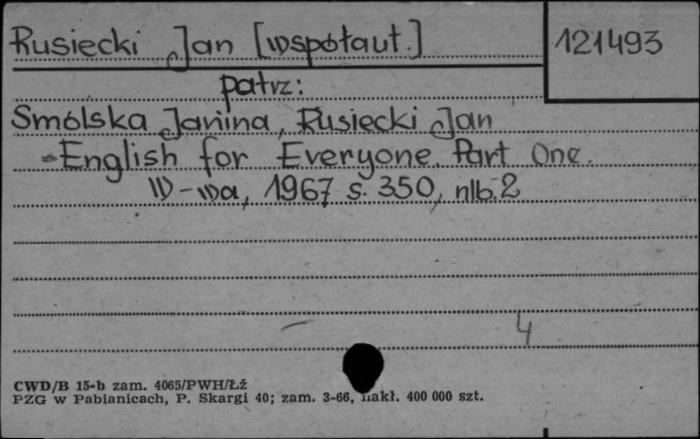 Rusiecki Jan [współaut.] 121493
patrz:
Smólska Janina, Rusiecki Jan
English for Everyone. Part One.
W-wa, 1967 s. 350, nlb. 2
4
CWD/B 15-b zam. 4065/PWH/Łź
PZG w Pabianicach, P. Skargi 40; zam. 3-66, nakł. 400 000 szt.